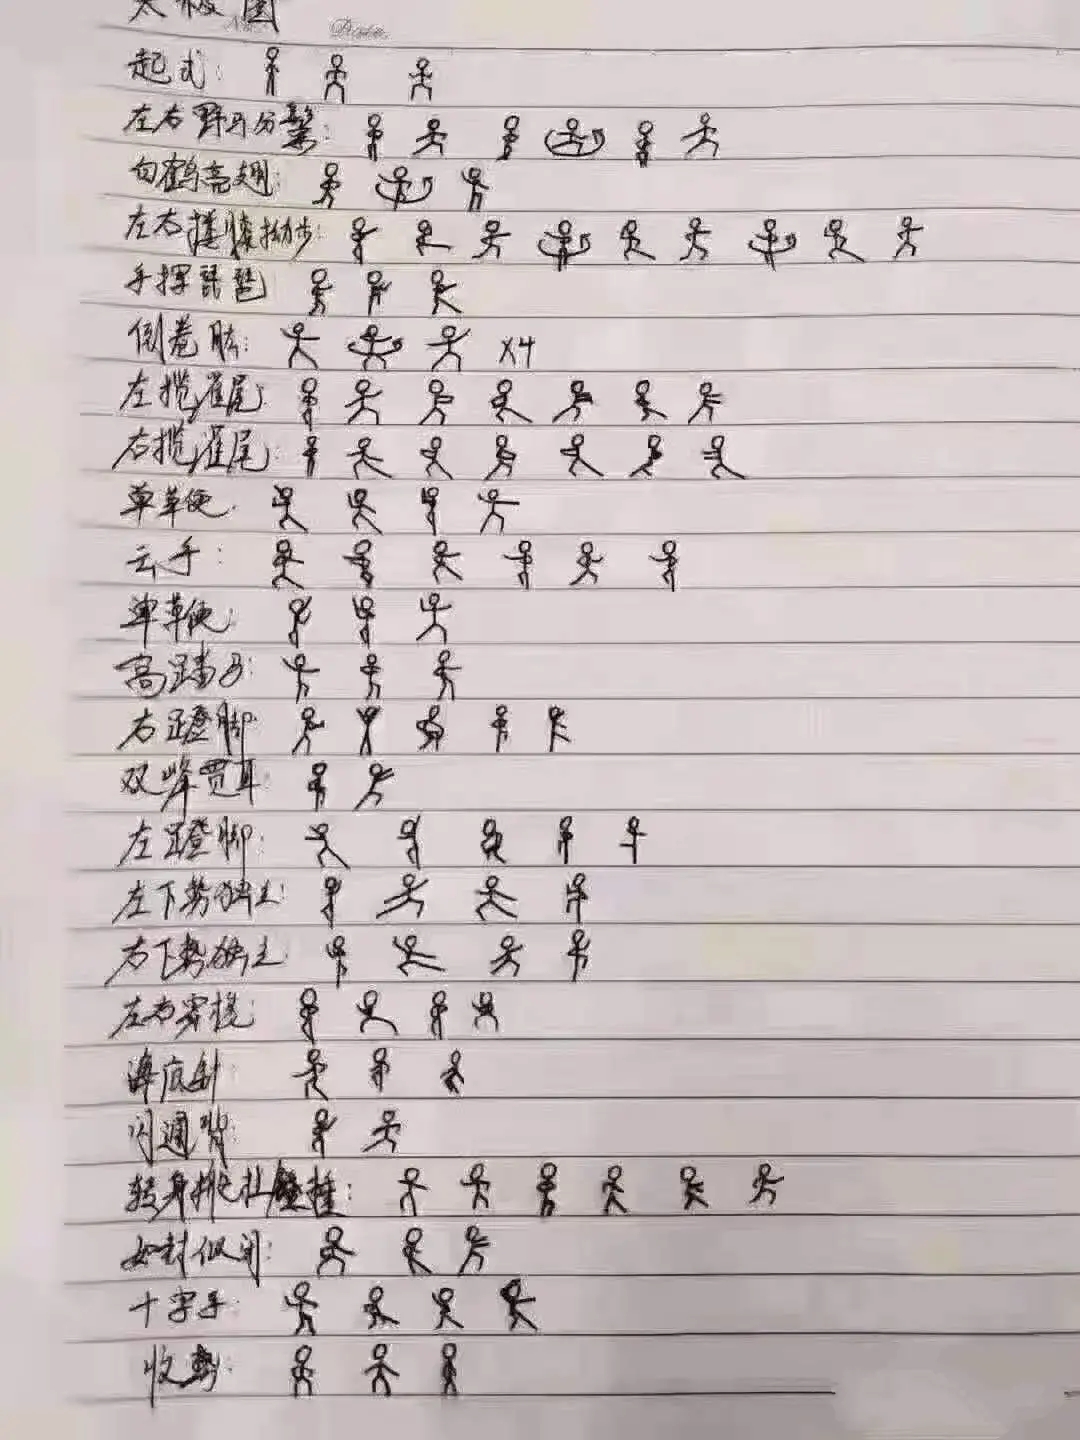 太极图
起式：
左右野马分鬃：
白鹤亮翅：
左右搂膝拗步：
手挥琵琶
倒卷肱： X4
左揽雀尾：
右揽雀尾：
单革便.
云手：
单革便：
高踏马：
右蹬脚
双峰贯耳
左蹬脚：
左下势独立：
右下势独立
左右穿梭：
海底针：
闪通背：
转身搬扎锤捶：
如封似闭：
十字手：
收势：